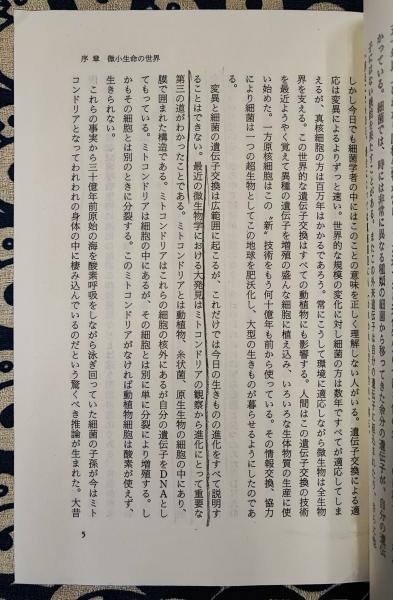 序章 微小生命の世界
しかし今日でも細菌学者の中にはこのことの意味を正しく理解しない人がいる。遺伝子交換による適
応は変異によるよりずっと速い。世界的な規模の変化に対し細菌の方は数年ですべてが適応してしま
えるが、真核細胞の方は百万年はかかるであろう。常にこうして環境に適応しながら微生物は全生物
界を支える。この世界的な遺伝子交換はすべての動植物にも影響する。人間はこの遺伝子交換の技術
を最近ようやく覚えて異種の遺伝子を増殖の盛んな細胞に植え込み、いろいろな生体物質の生産に使
い始めた。一方原核細胞はこの〝新〟技術をもう何十億年も前から使っている。その情報交換、協力
により細菌は一つの超生物としてこの地球を肥沃化し、大型の生きものが暮らせるようにしたのであ
る。
変異と細菌の遺伝子交換は広範囲に起こるが、これだけでは今日の生きものの進化をすべて説明す
ることはできない。最近の微生物学における大発見はミトコンドリアの観察から進化にとって重要な
第三の道がわかったことである。ミトコンドリアとは動植物、糸状菌、原生生物の細胞の中にあり、
膜で囲まれた構造である。ミトコンドリアはこれらの細胞の核外にあるが自分の遺伝子をDNAとし
てもっている。ミトコンドリアは細胞の中にあるが、その細胞とは別に単に分裂により増殖する。し
かもその細胞とは別のときに分裂する。このミトコンドリアがなければ動植物細胞は酸素が使えず、
生きられない。
これらの事実から三十億年前原始の海を酸素呼吸をしながら泳ぎ回っていた細菌の子孫が今はミト
コンドリアとなってわれわれの身体の中に棲み込んでいるのだという驚くべき推論が生まれた。大昔
5